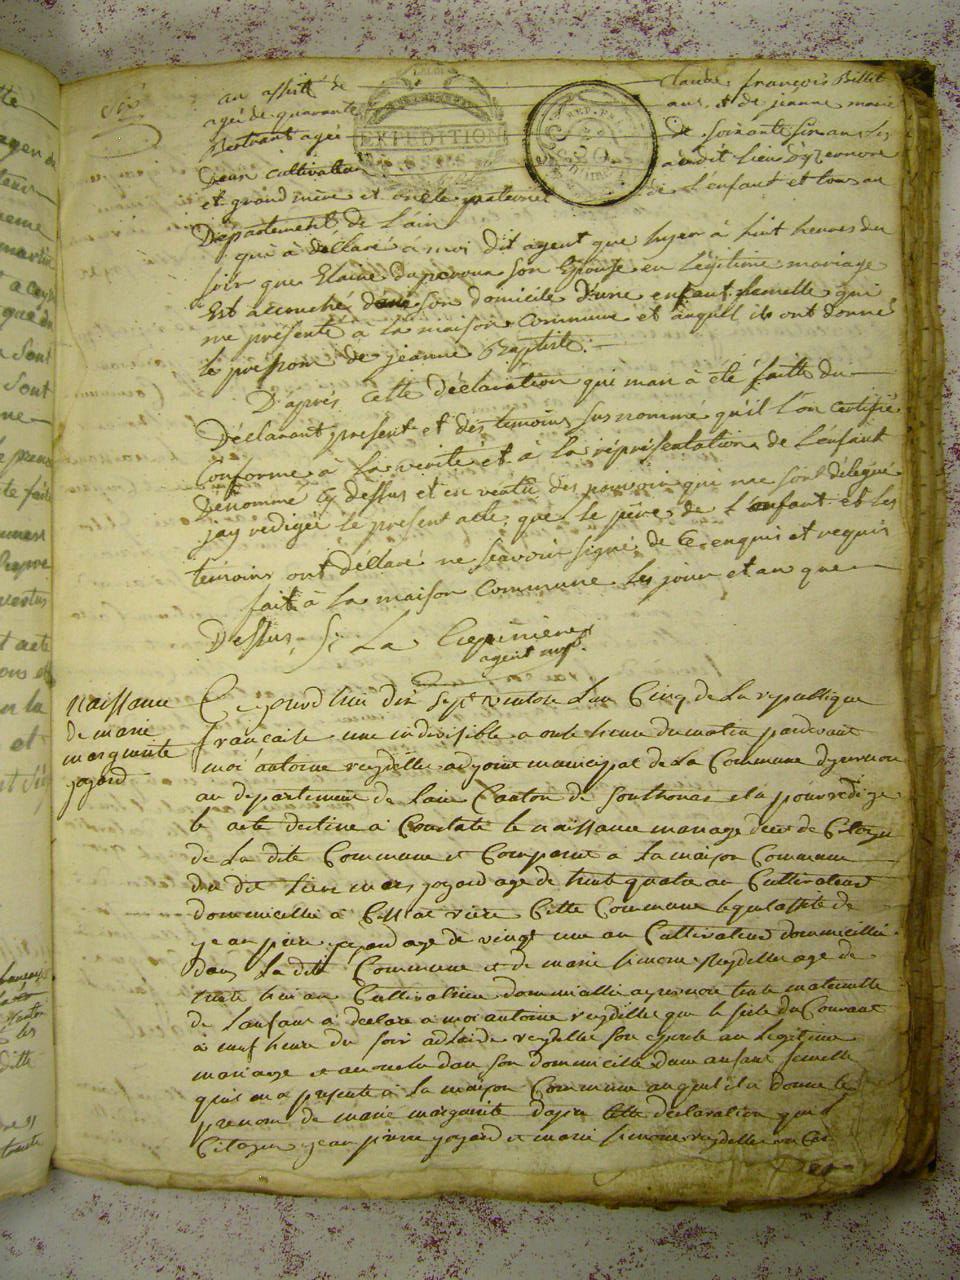 Six
an assisté de Claude françois Billet
agée de quarante ans, et de jeanne marie
Bertrant agée De soixante six ans Les
Deux cultivateur audit Lieu D'yzernore
et grand mère et oncle paternel de L'enfant et tous au
Département de L'ain
qui à déllaré a moi dit agent que hyer à huit heures du
soir que Elaine Duperroux son Epouse en Légitime mariage
Est accouché dans son domicile D'une enfant femelle qui
me présenté à La maison Commune et auquel ils ont donné
le prénom de jeanne Baptiste.
D'après Cette déclaration qui m'an à été faitte du
Déclarant présent et des temoins sus nommé qu'il l'on certifié
Conforme à La verité et à la réprésentation de L'enfant
Dénommé Cy dessus et en vertu des pouvoir qui me sont délégué
jay redigée le present acte, que le père de L'enfant et Les
temoins ont déllaré ne scavoir signé de Ce enquis et requis
fait à La maison Commune Les jour et an que
Dessus,
agent mpl.
Naissance
de marie
marguerite
joyard
Cejourd'hui dix sept ventose L'an Cinq de La republique
francaise une indivisible a onze heure du matin pardevant
moi antoine reydellet adjoint municipal de La Commune dyzernore
au departement de Lain Canton de Sonthonax elu pour redige
le acte destine à Constaté le naissance mariage deces de Citoyen
de La dite Commune et Comparut à La maison Commune
du dit Lieu marc joyard age de trente quatre an Cultivateur
dommicillie à Cessiat rière Cette Commune lequel assité de
jean pierre joyard age de vingt une an Cultivateur dommicillie
dans La dite Commune et de marie simone Reydellet age de
trente huit an Cultivatrice dommicillie ayzernore tente maternelle
de Lanfant à declare a moi antoine reydellet que le seize du Courant
à neuf heure du soir adelaide reydellet son epouse an Legitime
mariage et accouche dan son dommicille dune anfant femelle
quil ma presente à La maison Commune auquel il a donne le
prenom de marie marguerite dapre Cette declaration que
Citoyen jean pierre joyard et marie simone reydellet on Cer